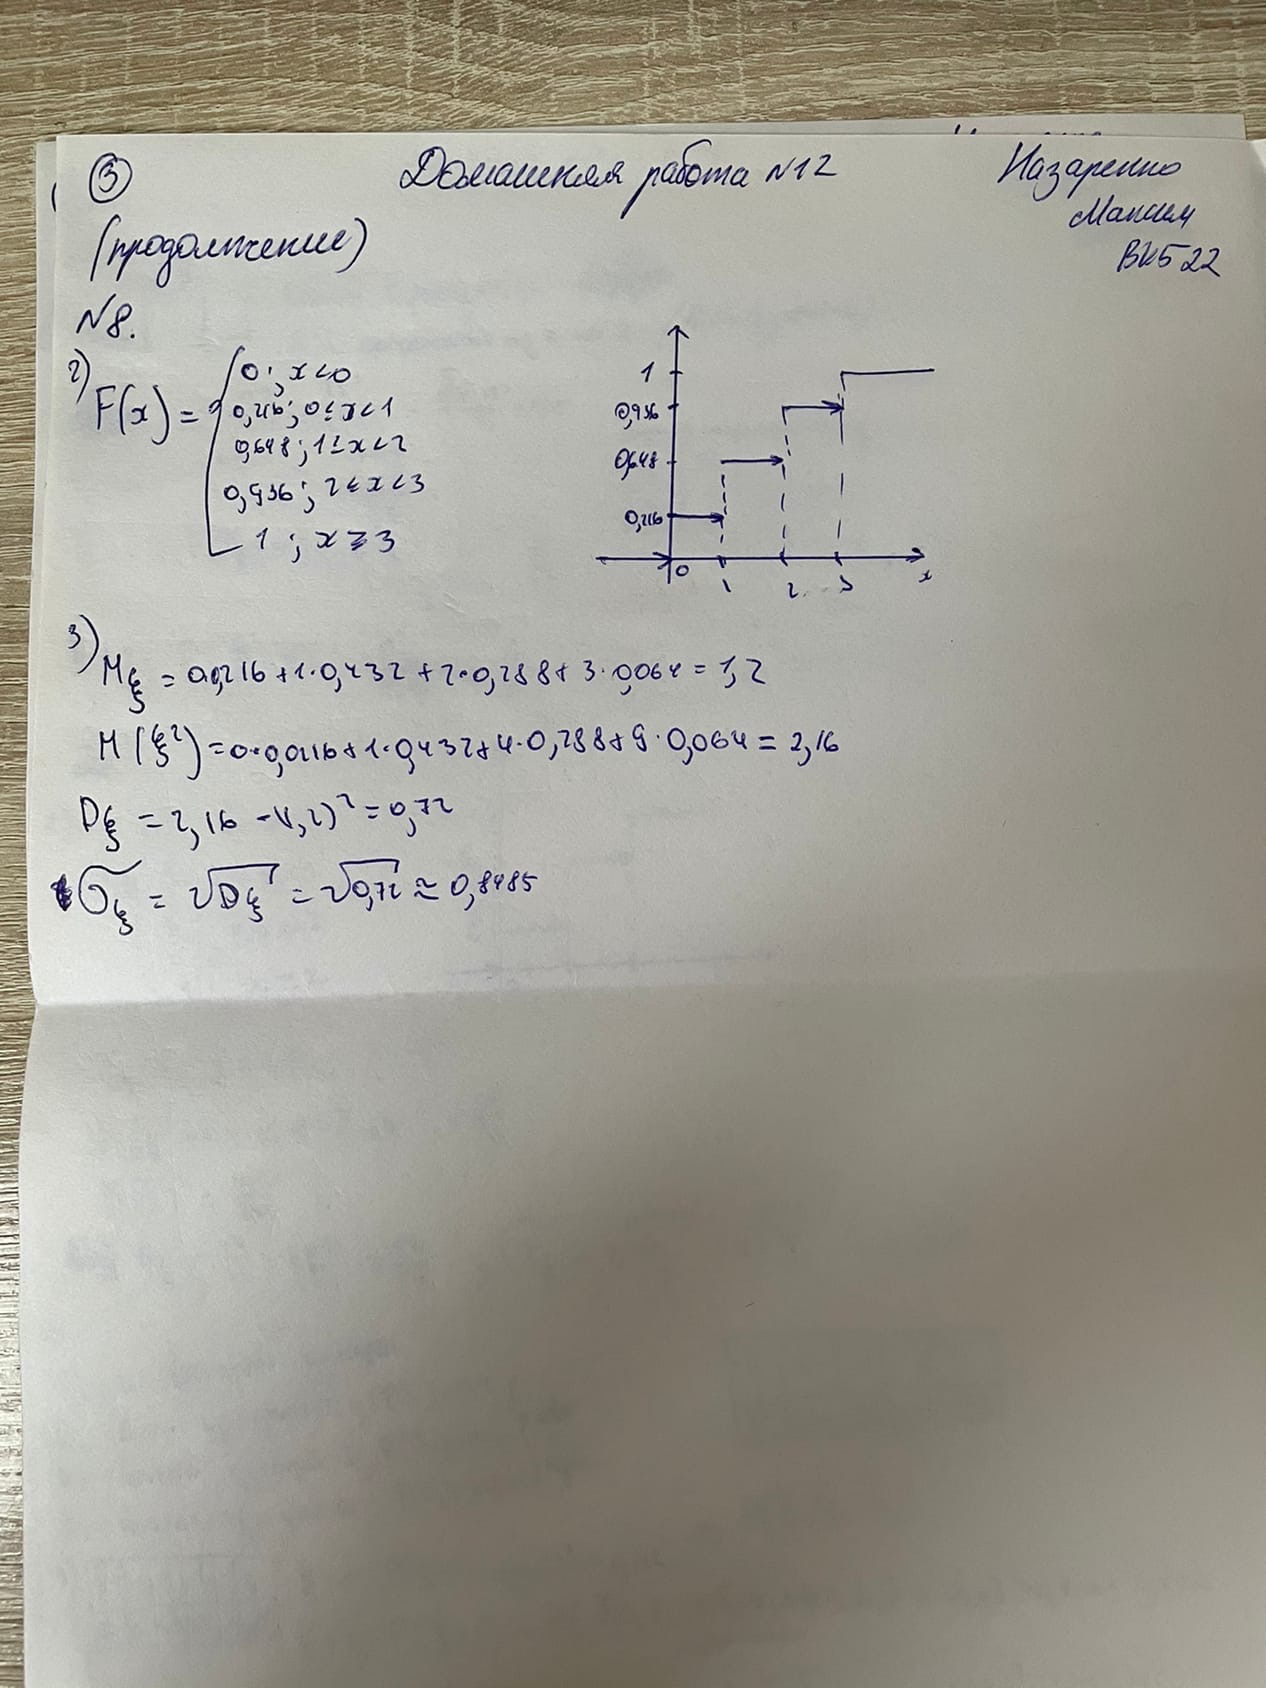 ③ Домашняя работа N12 Назаренко
(продолжение) Максим
ВКБ22
N8.
2) F(x) = { 0 ; x<0
0,216 ; 0≤x<1
0,648 ; 1≤x<2
0,936 ; 2≤x<3
1 ; x⩾3
1
0,936
0,648
0,216
0 1 2 3 x
3) Mξ = 0·0,216+1·0,432+2·0,288+3·0,064=1,2
M(ξ²)=0·0,0216+1·0,432+4·0,288+9·0,064=2,16
Dξ = 2,16 -(1,2)²=0,72
σξ = √Dξ = √0,72 ≈ 0,8485